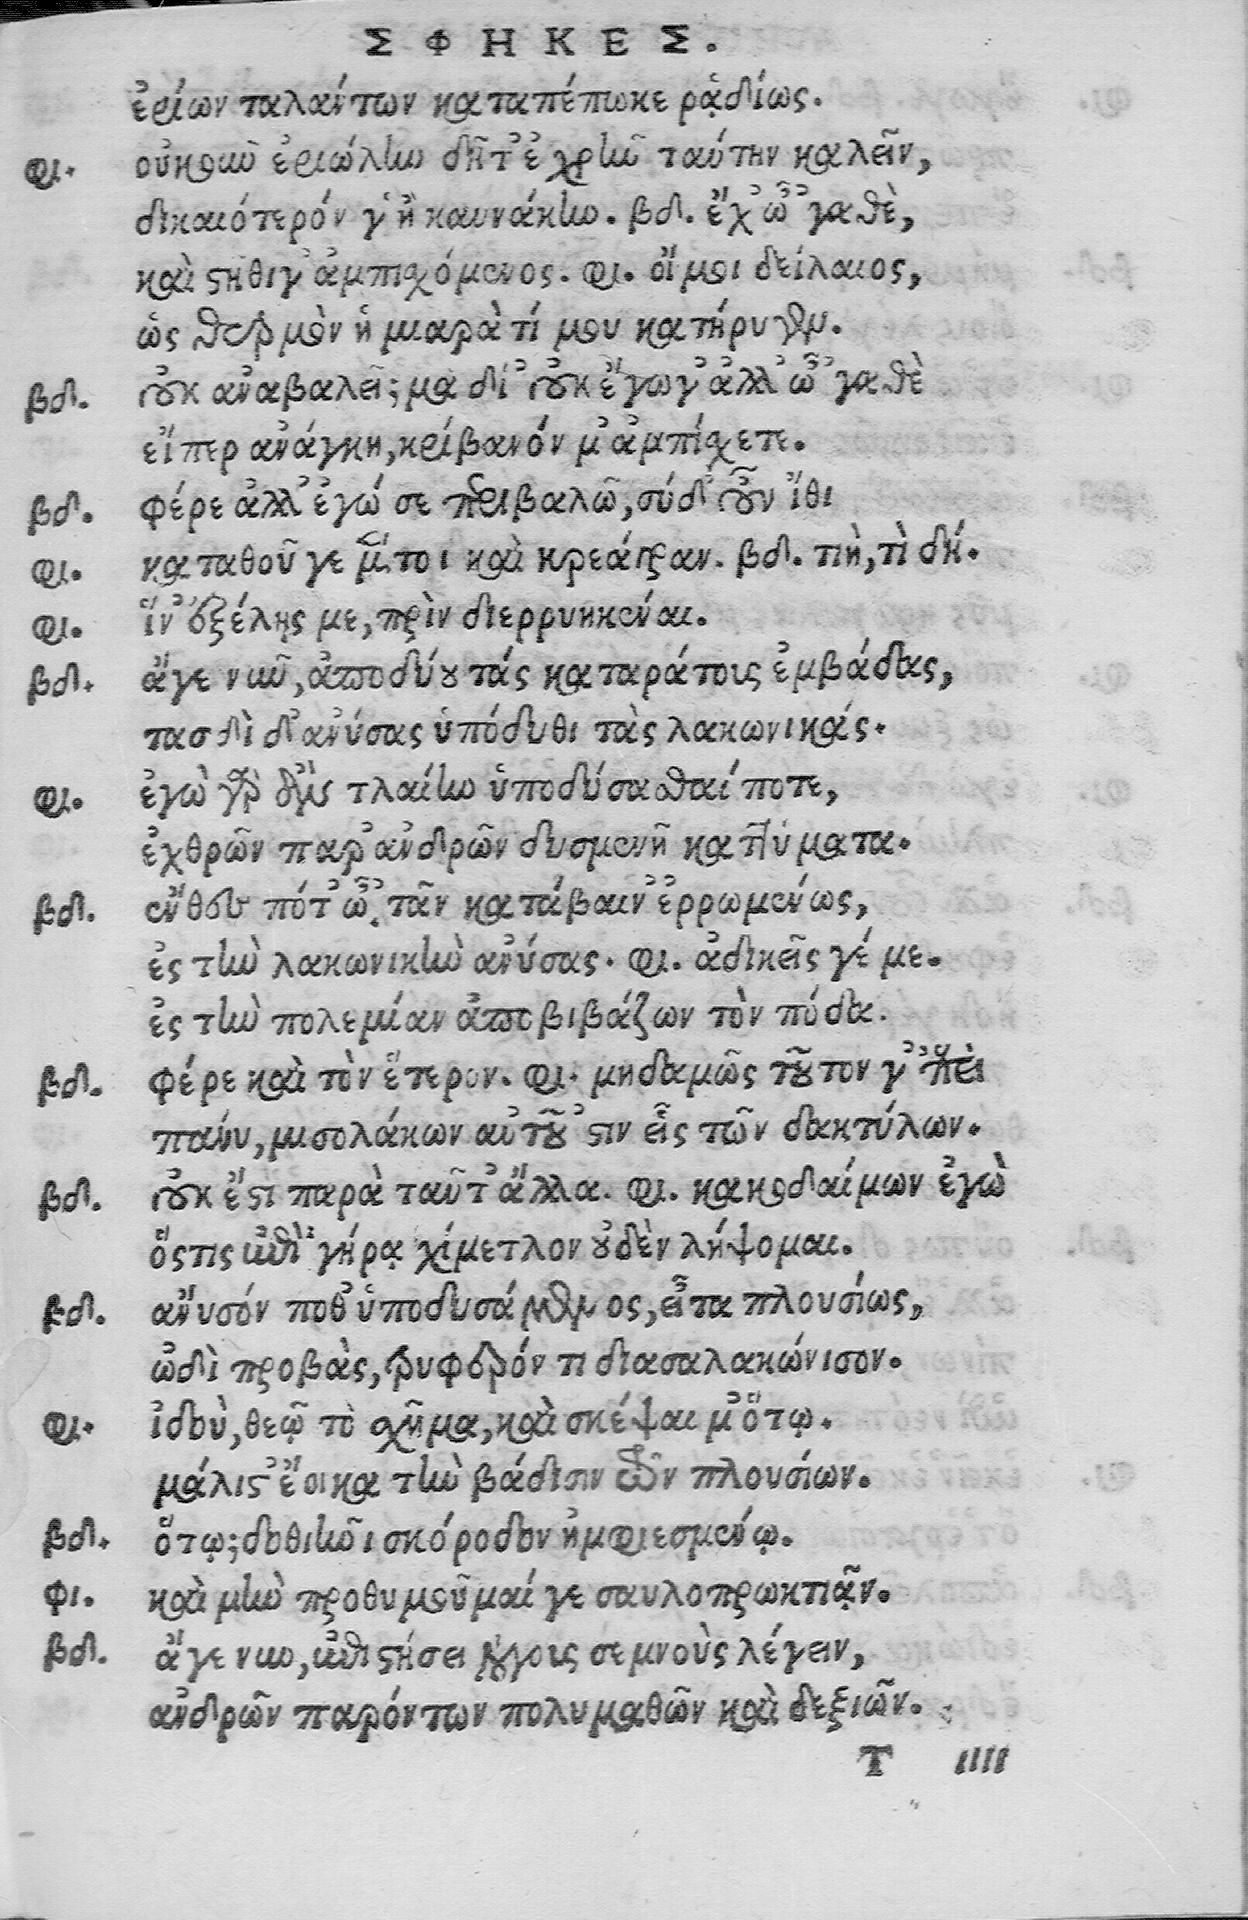 ΣΦΗΚΕΣ.
ἐρίων ταλάντων καταπέπωκε ῥᾳδίως.
φι. οὔκουν ἐριώλην δῆτ' ἐχρῆν ταύτην καλεῖν,
δικαιότερόν γ' ἢ καυνάκην. βδ. ἔχ' ὦ 'γαθὲ,
καὶ στῆθι γ' ἀμπισχόμενος. φι. οἴμοι δείλαιος,
ὡς θερμὸν ἡ μιαρὰ τί μου κατήρυγεν.
βδ. οὐκ ἀναβαλεῖ; μὰ δί' οὐκ ἔγωγ' ἀλλ' ὦ 'γαθὲ
εἴπερ ἀνάγκη, κρίβανόν μ' ἀμπίσχετε.
βδ. φέρε ἀλλ' ἐγώ σε περιβαλῶ, σύ δ' οὖν ἴθι
φι. καταθοῦ γε μέντοι καὶ κρεάγραν. βδ. τιὴ, τὶ δή.
φι. ἵν' ἐξέλῃς με, πρὶν διερρυηκέναι.
βδ. ἄγε νῦν, ἀποδύου τάς καταράτους ἐμβάδας,
τασδὶ δ' ἀνύσας ὑπόδυθι τὰς λακωνικάς.
φι. ἐγὼ γὰρ ἂν τλαίην ὑποδύσασθαί ποτε,
ἐχθρῶν παρ' ἀνδρῶν δυσμενῆ καττύματα.
βδ. ἔνθου πότ' ὦ τᾶν κατάβαιν' ἐρρωμένως,
ἐς τὴν λακωνικὴν ἀνύσας. φι. ἀδικεῖς γέ με.
ἐς τὴν πολεμίαν ἀποβιβάζων τὸν πόδα.
βδ. φέρε καὶ τὸν ἕτερον. φι. μηδαμῶς τοῦτον γ' ἐπεὶ
πάνυ, μισολάκων αὐτοῦ 'στιν εἷς τῶν δακτύλων.
βδ. οὐκ ἔστι παρὰ ταῦτ' ἄλλα. φι. κακοδαίμων ἐγὼ
ὅστις ἐπὶ γήρᾳ χίμετλον οὐδὲν λήψομαι.
βδ. ἄνυσόν ποθ' ὑποδυσάμενος, εἶτα πλουσίως,
ὡδὶ προβὰς, τρυφερόν τι διασαλακώνισον.
φι. ἰδοὺ, θεῶ τὸ σχῆμα, καὶ σκέψαι μ' ὅτῳ.
μάλιστ' ἔοικα τὴν βάδισιν τῶν πλουσίων.
βδ. ὅτῳ; δοθιῆνι σκόροδον ἠμφιεσμένῳ.
φι. καὶ μὴν προθυμοῦμαί γε σαυλοπρωκτιᾷν.
βδ. ἄγε νυν, ἐπιστήσει λόγους σεμνοὺς λέγειν,
ἀνδρῶν παρόντων πολυμαθῶν καὶ δεξιῶν.
Τ iiii